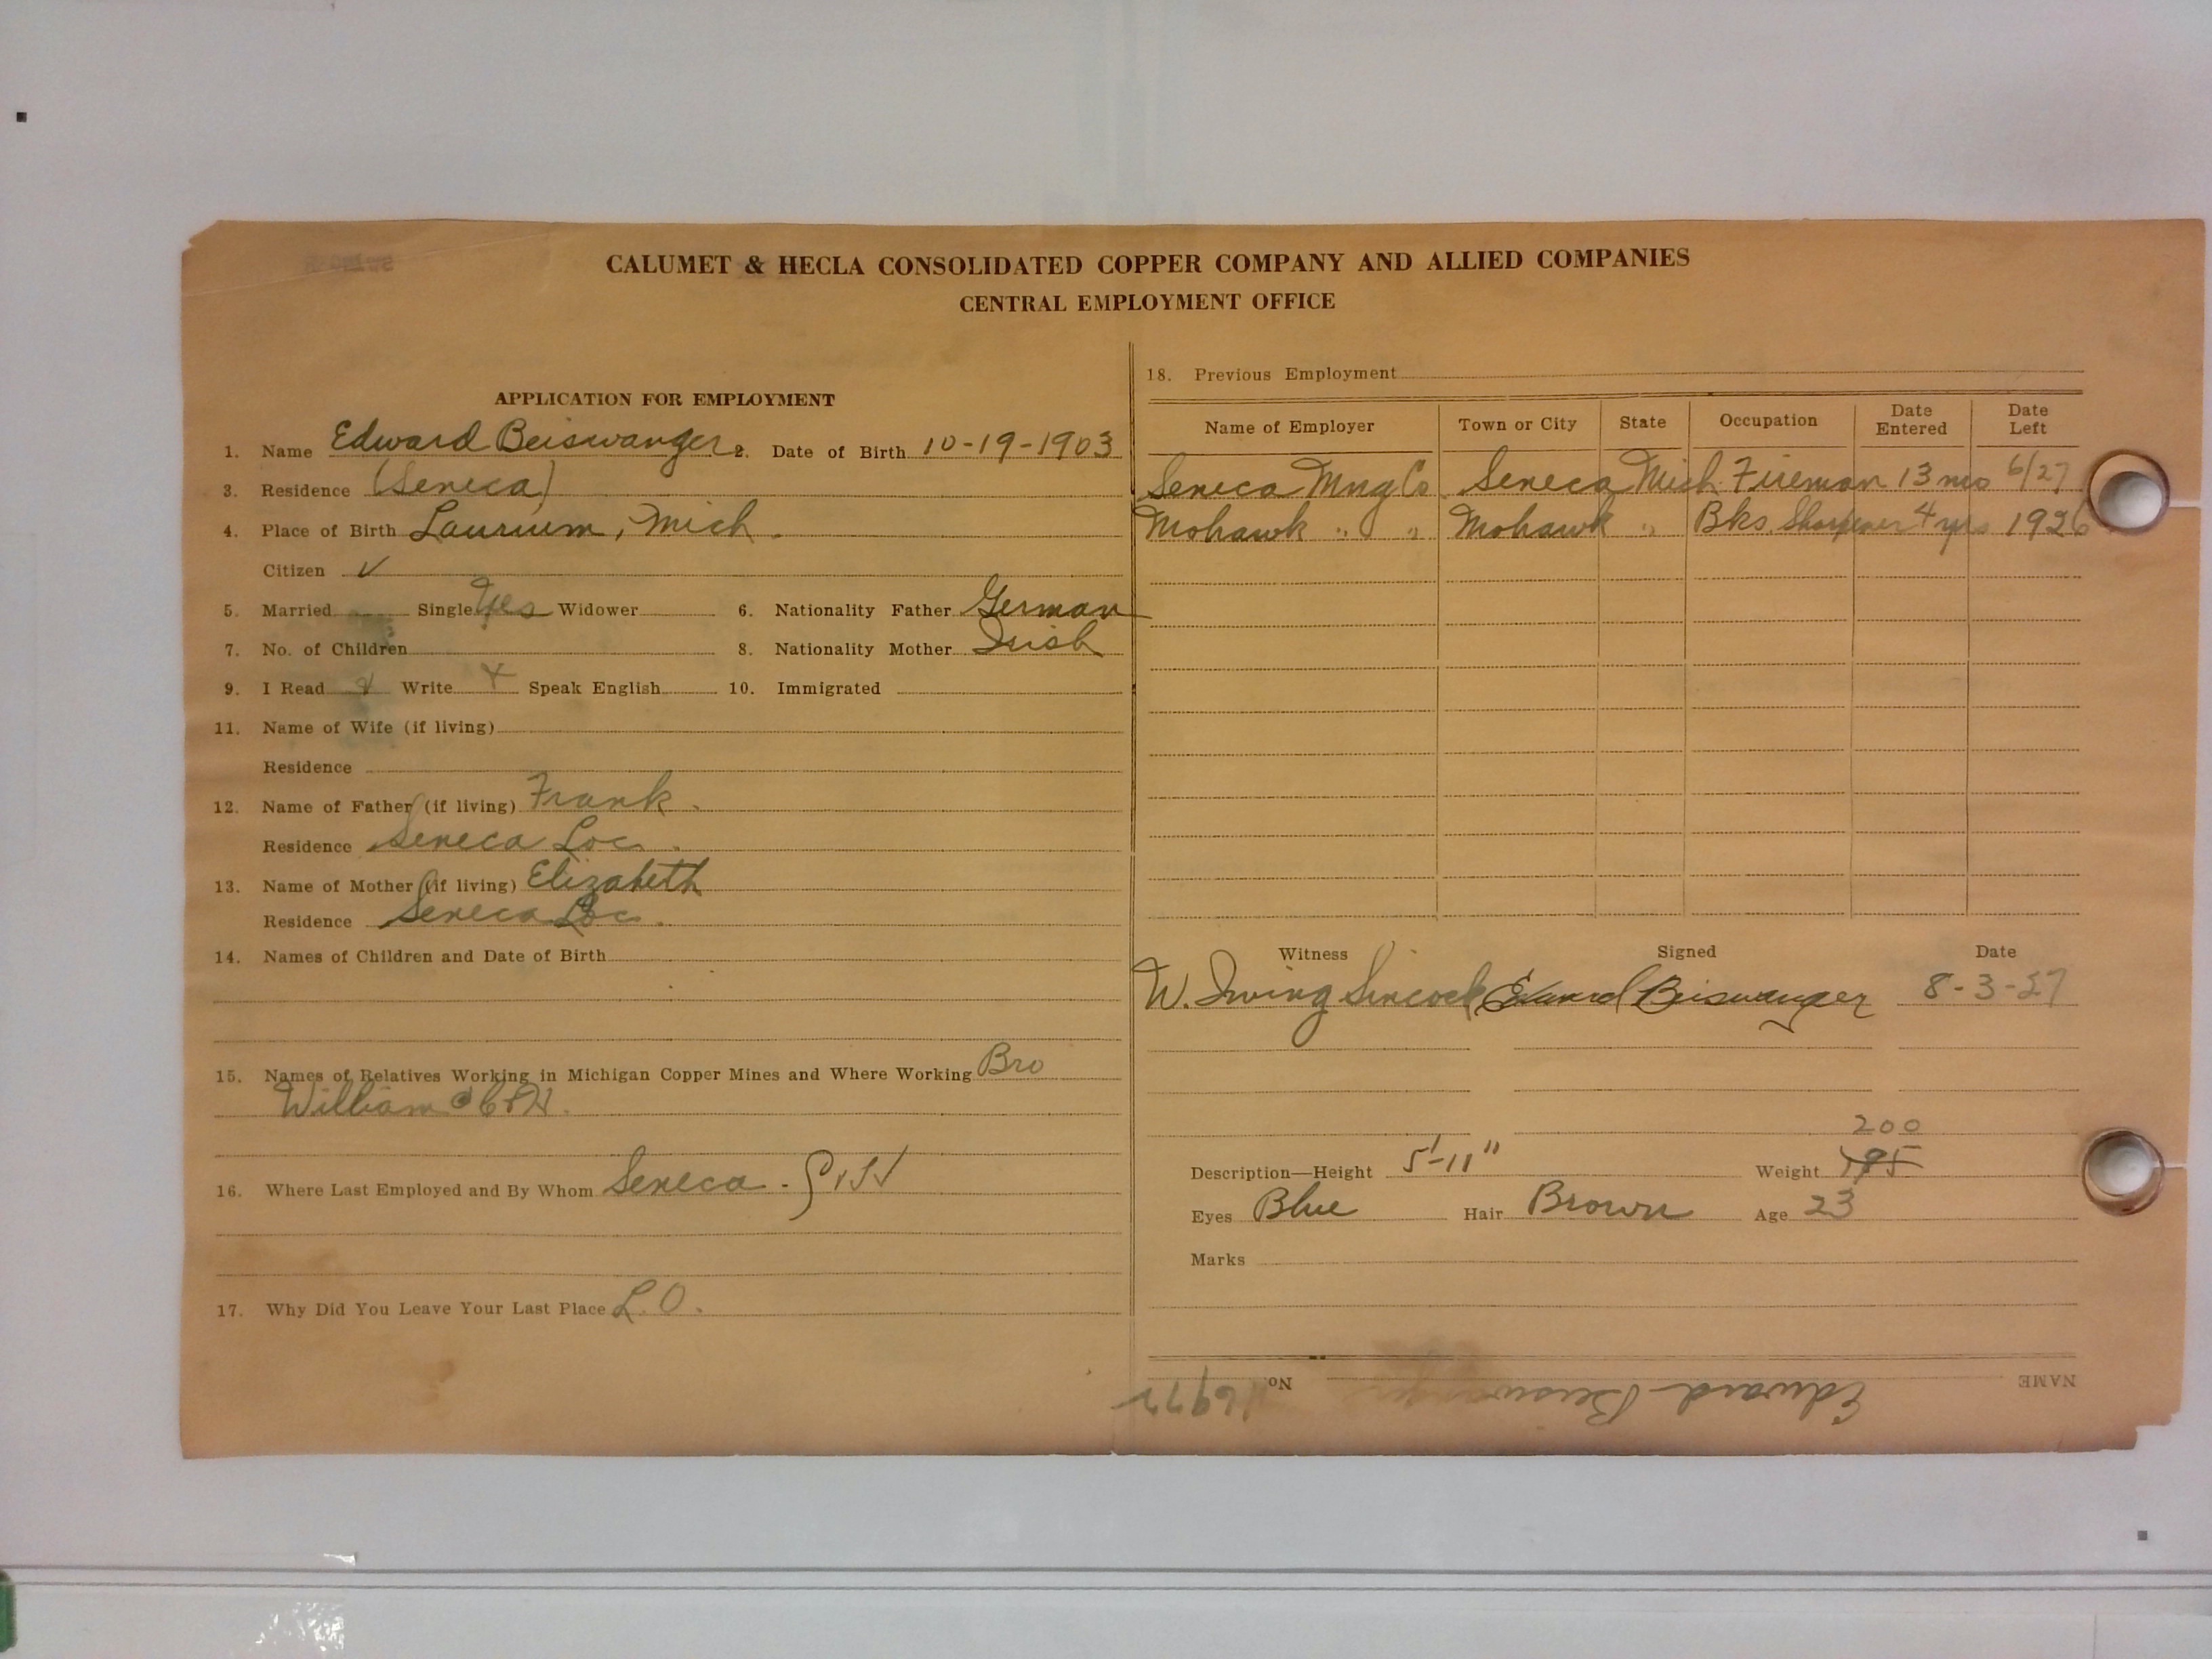 CALUMET & HECLA CONSOLIDATED COPPER COMPANY AND ALLIED COMPANIES
CENTRAL EMPLOYMENT OFFICE
APPLICATION FOR EMPLOYMENT
1. Name Edward Beiswanger 2. Date of Birth 10-19-1903
3. Residence (Seneca)
4. Place of Birth Laurium, Mich.
Citizen ✓
5. Married Single Yes Widower 6. Nationality Father German
7. No. of Children 8. Nationality Mother Irish
9. I Read Write Speak English 10. Immigrated
11. Name of Wife (if living)
Residence
12. Name of Father (if living) Frank.
Residence Seneca Loc.
13. Name of Mother (if living) Elizabeth
Residence Seneca Loc.
14. Names of Children and Date of Birth
15. Names of Relatives Working in Michigan Copper Mines and Where Working Bro
William C&H.
16. Where Last Employed and By Whom Seneca.
17. Why Did You Leave Your Last Place L.O.
18. Previous Employment
Name of Employer Town or City State Occupation Date Entered Date Left
Seneca Mng Co. Seneca Mich. Fireman 13 mos 6/27
Mohawk " " Mohawk " Bks. Sharpener 4 yrs 1926
Witness Signed Date
W. Irving Sincock Edward Beiswanger 8-3-27
200
Description—Height 5'-11" Weight 195
Eyes Blue Hair Brown Age 23
Marks
NAME Edward Beiswanger No.